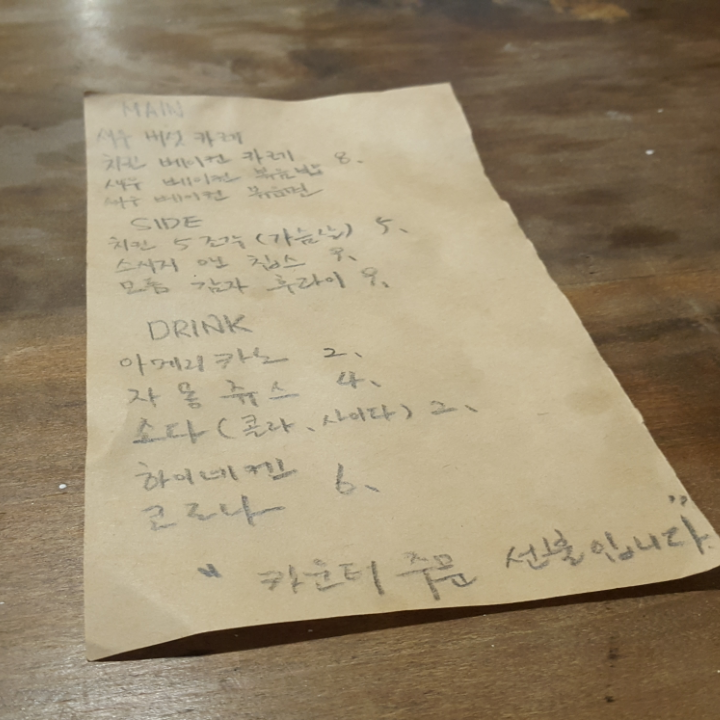 MAIN
새우 버섯 카레
치킨 베이컨 카레 8.
새우 베이컨 볶음밥
새우 베이컨 볶음면
SIDE
치킨 5조각 (가슴살) 5.
소시지 앤 칩스 9.
모듬 감자 후라이 9.
DRINK
아메리카노 2.
자몽 쥬스 4.
소다 (콜라, 사이다) 2.
하이네켄
6.
코로나
" 카운터 주문 선불입니다 "